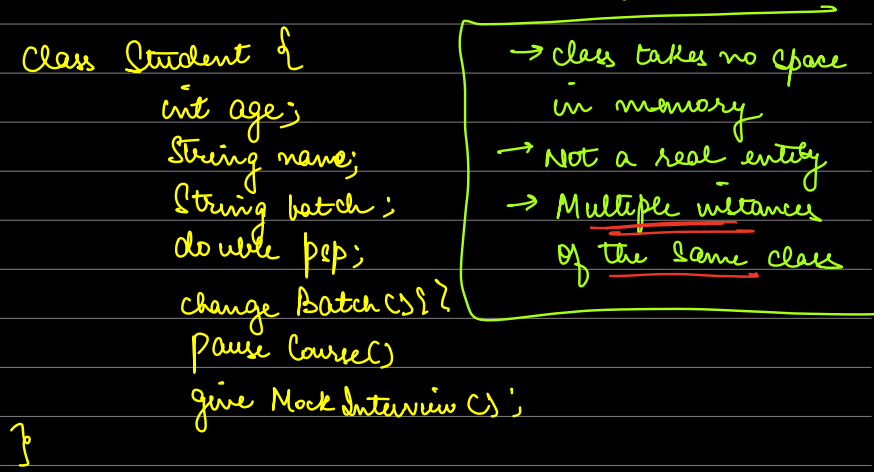 class Student {
int age;
String name;
String batch;
double psp;
change Batch(){}
pause Course()
give Mock Interview();
}
→ class takes no space
in memory
→ Not a real entity
→ Multiple instances
of the same class